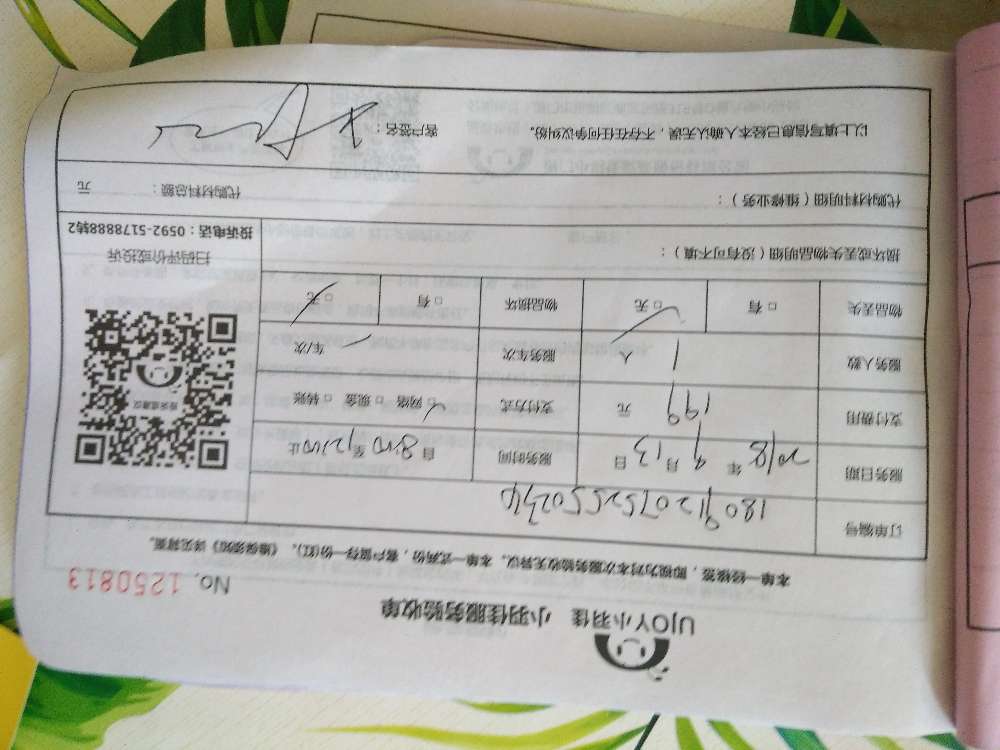 UJOY小羽佳 小羽佳服务验收单
No. 1250813
本单一经核签，即视为对本次服务验收无异议。本单一式两份，客户留存一份(红)。《维保须知》详见背面。
订单编号
服务日期 2018年 9月 13日 服务时间 自8:00至12:00止
支付费用 199 元 支付方式 □网络 □现金 □转账
服务人数 1 人 服务车次 车/次
物品丢失 □有 □无 物品损坏 □有 □无
扫码评价或投诉
投诉电话：0592-5178888转2
损坏或丢失物品明细（没有可不填）：
代购材料明细（维修业务）： 代购材料总额： 元
以上填写信息已经本人确认无误，不存在任何争议纠纷。 客户签名：